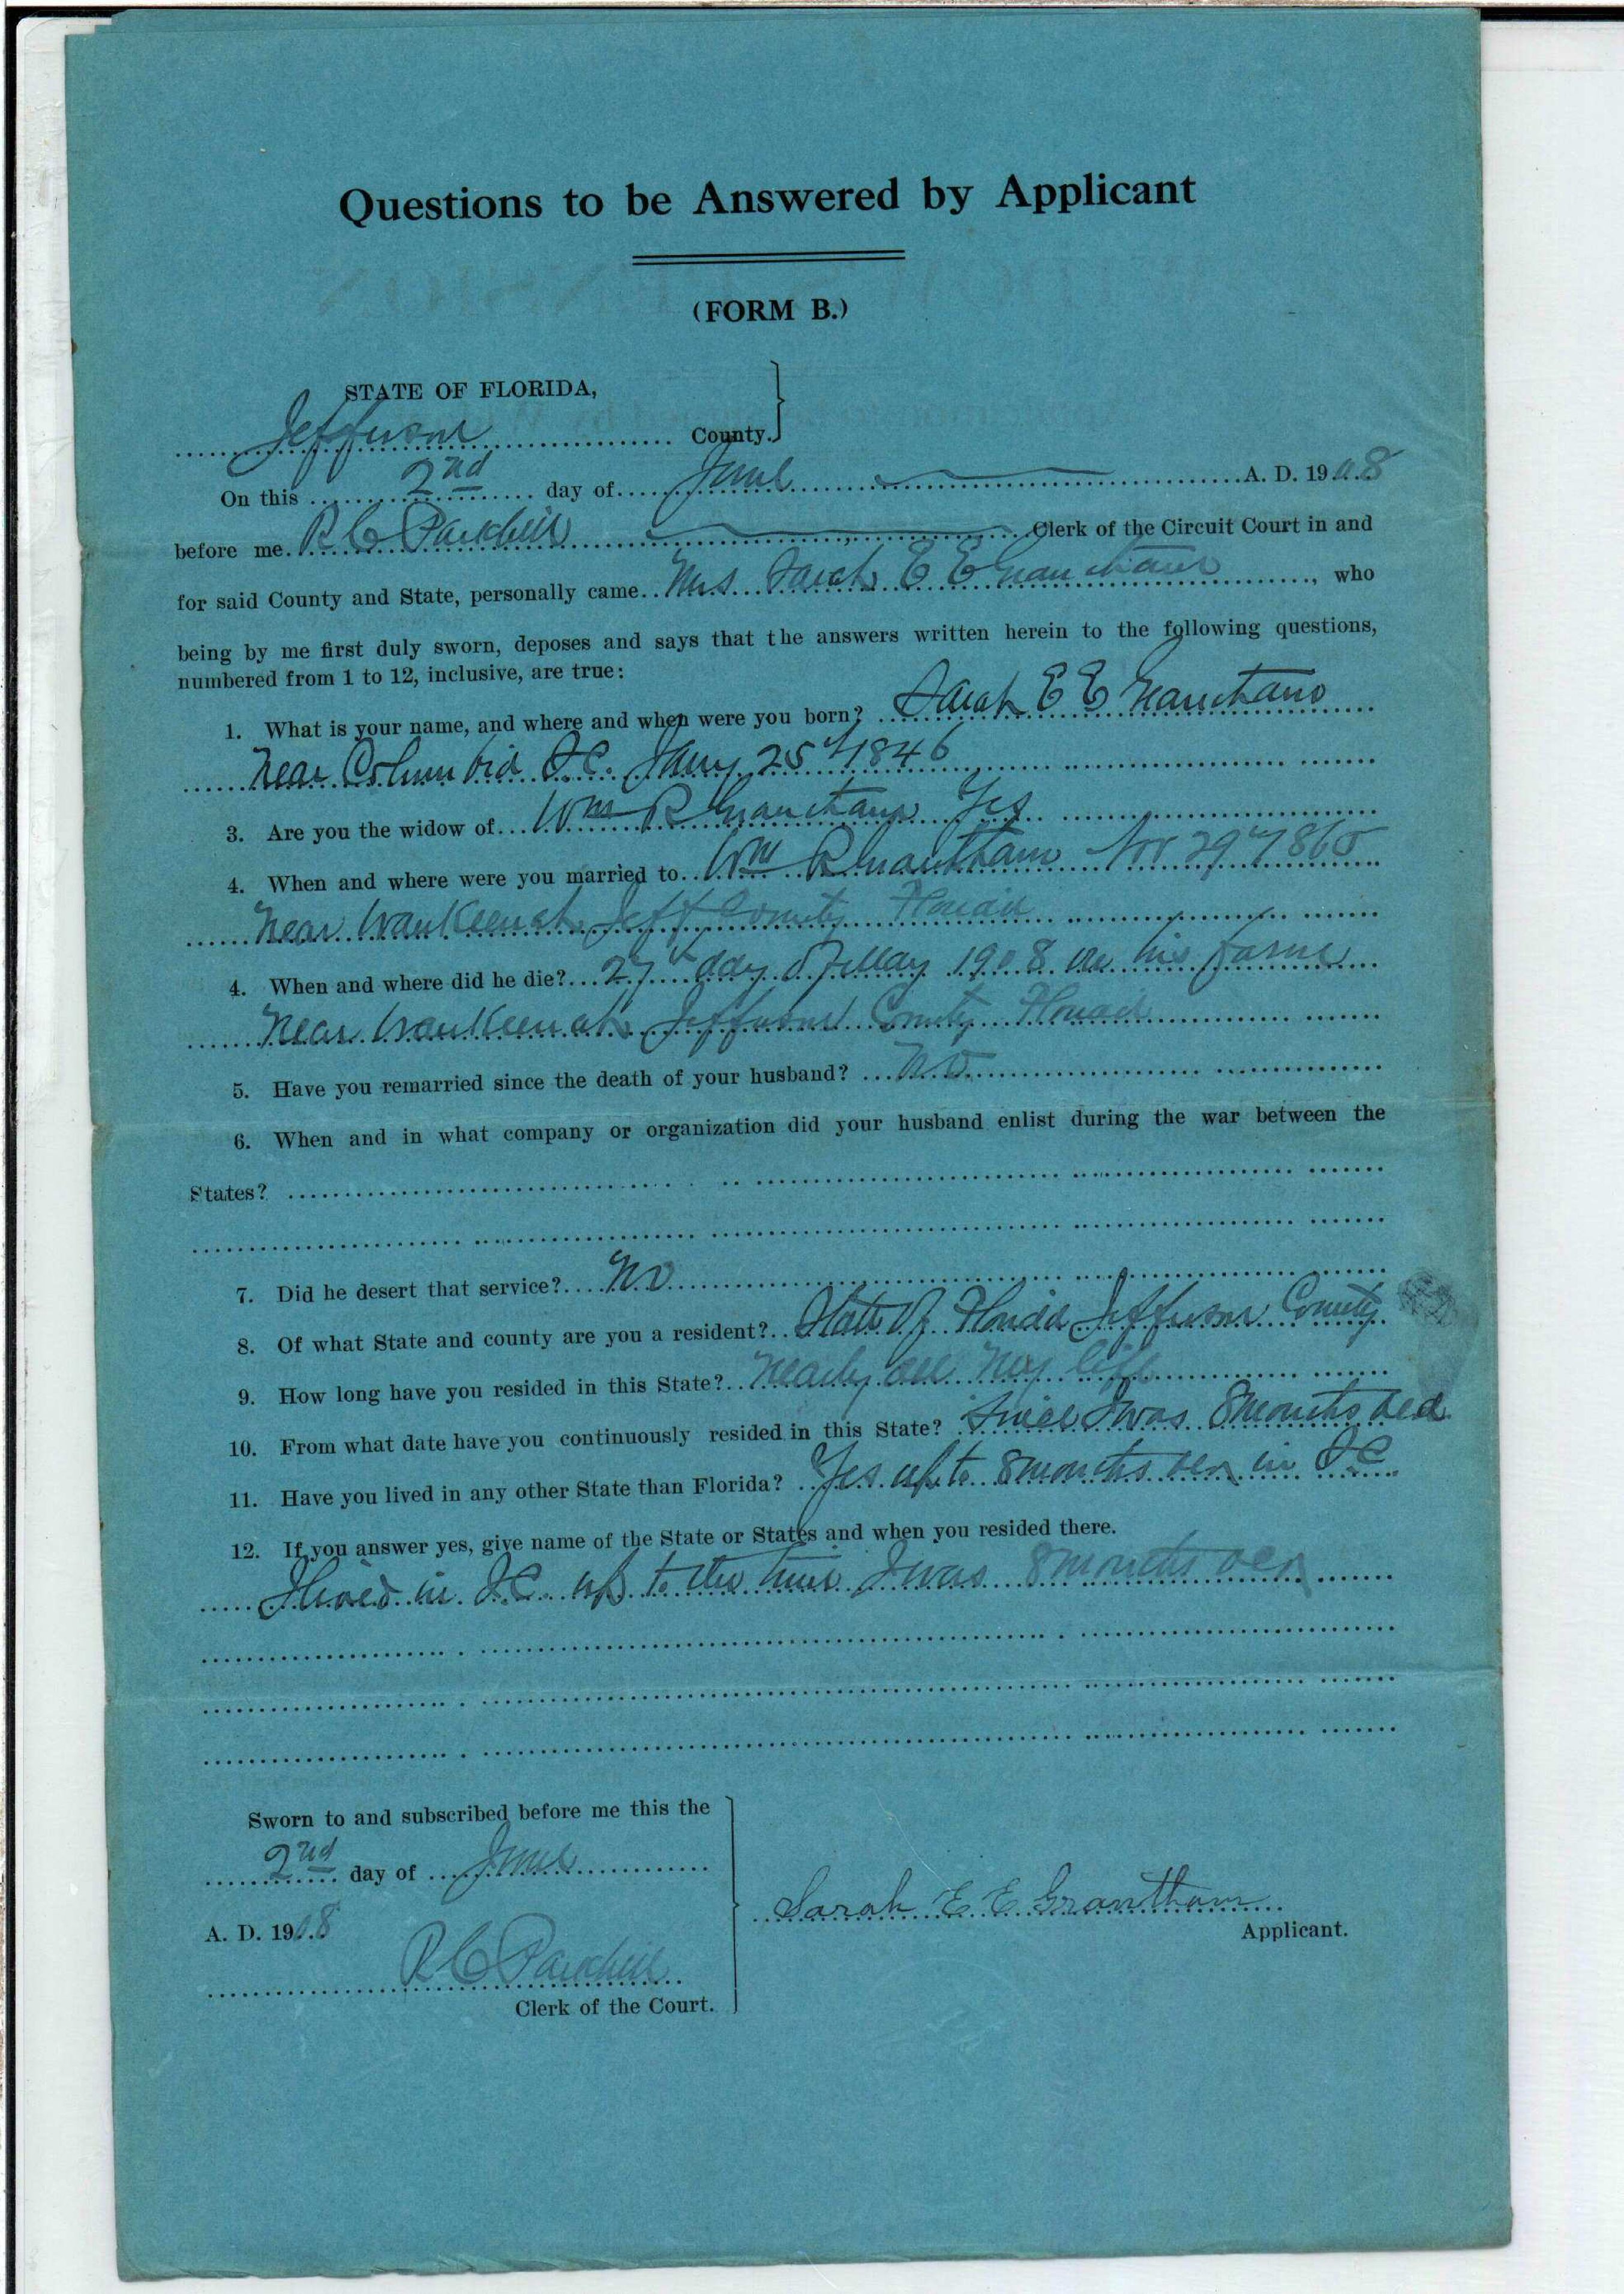 Questions to be Answered by Applicant
(FORM B.)
STATE OF FLORIDA,
Jefferson County.
On this 2nd day of June A. D. 1908
before me R C Parkhill Clerk of the Circuit Court in and
for said County and State, personally came Mrs Sarah E E Grantham, who
being by me first duly sworn, deposes and says that the answers written herein to the following questions,
numbered from 1 to 12, inclusive, are true:
1. What is your name, and where and when were you born? Sarah E E Grantham
Near Columbia S.C. Jany 25th 1846
3. Are you the widow of Wm R Grantham Yes
4. When and where were you married to Wm R Grantham Nov 29th 1865
Near Waukeenah Jeff County Florida
4. When and where did he die? 27th day of May 1908 on his farm
Near Waukeenah Jefferson County Florida
5. Have you remarried since the death of your husband? No
6. When and in what company or organization did your husband enlist during the war between the
States?
7. Did he desert that service? No
8. Of what State and county are you a resident? State of Florida Jefferson County
9. How long have you resided in this State? Nearly all my life
10. From what date have you continuously resided in this State? Since I was 8 months old
11. Have you lived in any other State than Florida? Yes up to 8 months old in S.C.
12. If you answer yes, give name of the State or States and when you resided there.
I lived in S.C. up to the time I was 8 months old
Sworn to and subscribed before me this the
2nd day of June
A. D. 1908
Sarah E. E. Grantham
Applicant.
R C Parkhill
Clerk of the Court.